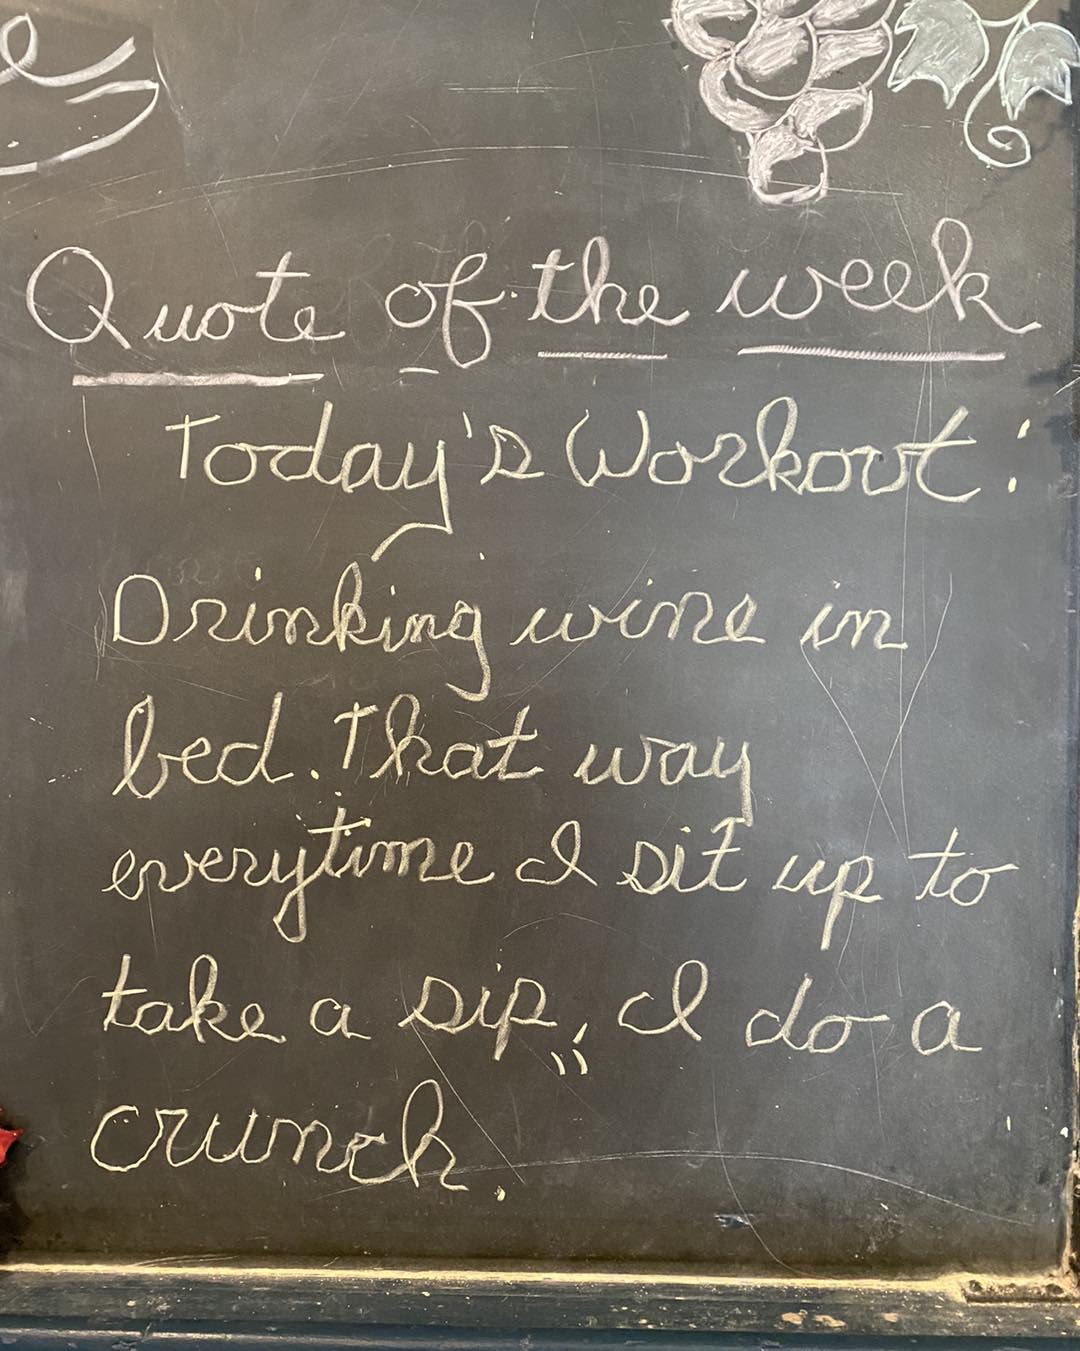 Quote of the week
Today's Workout:
Drinking wine in
bed. That way
everytime I sit up to
take a sip, I do a
crunch.